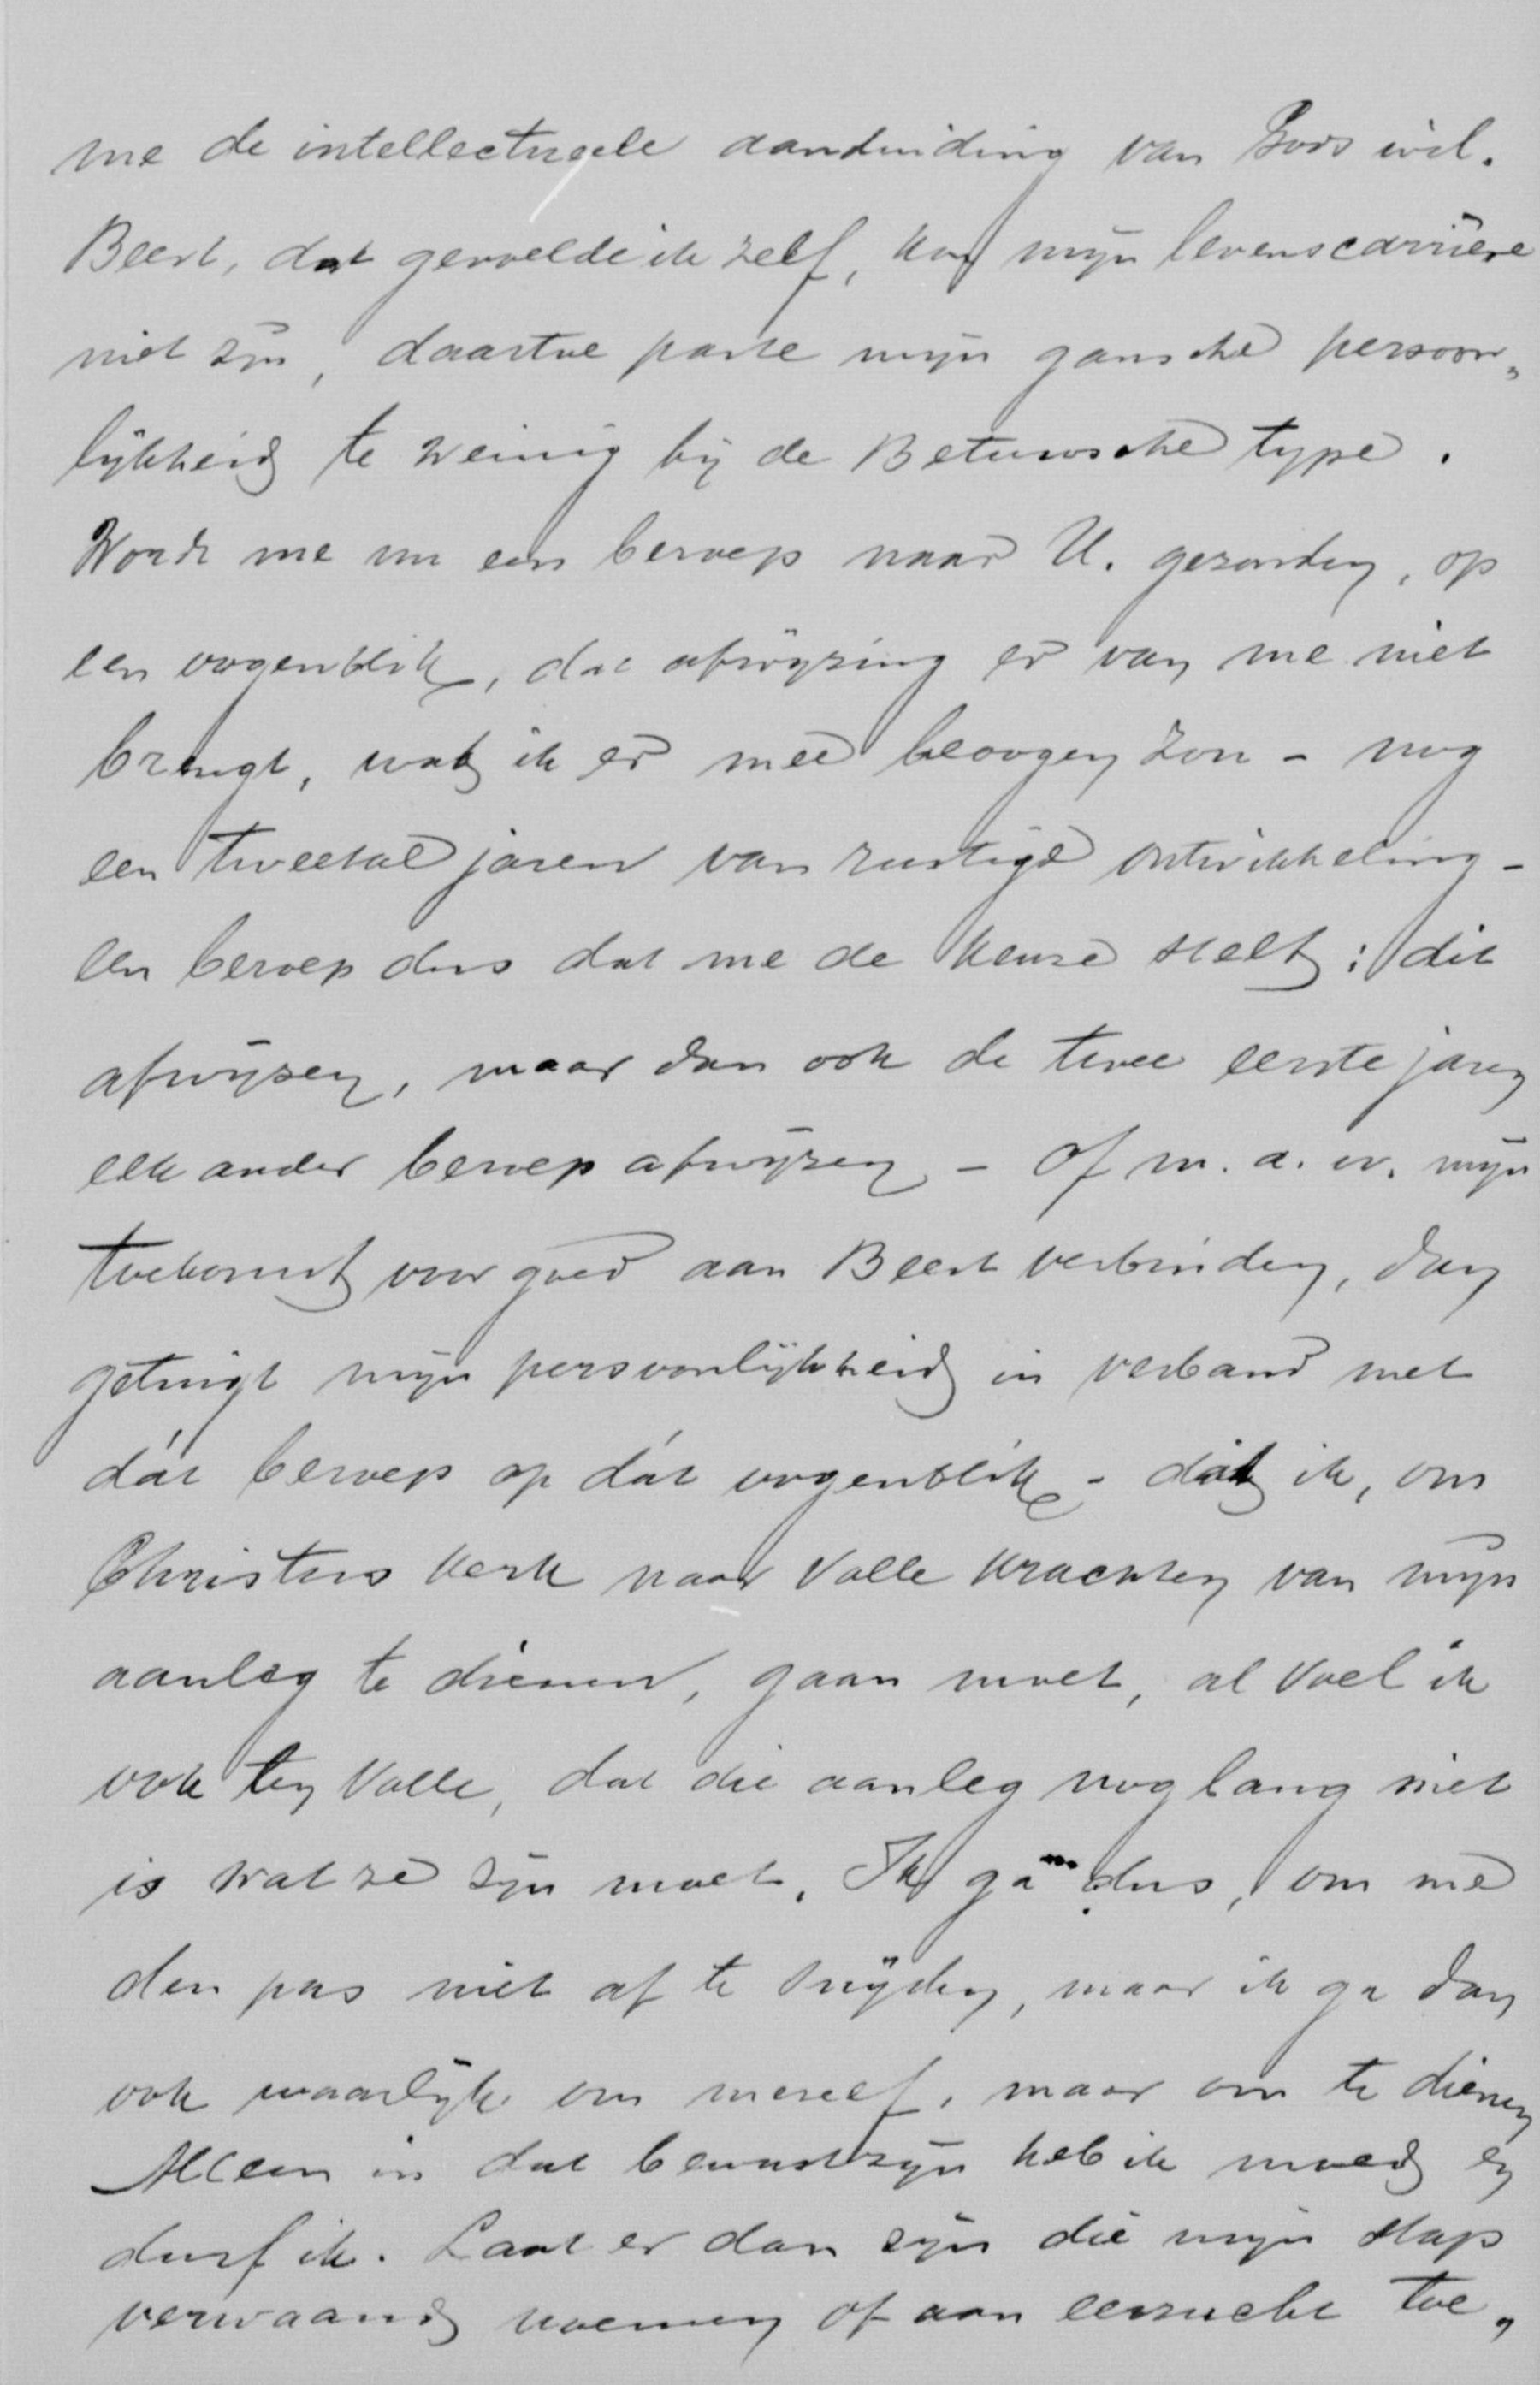 me de intellectueele aanduiding van Gods wil.
Beest, dat gevoelde ik zelf, kon mijn levenscarrière
niet zijn, daartoe paste mijn gansche persoon„
lijkheid te weinig bij de Betuwsche type.
Wordt me nu een beroep naar U. gezonden, op
een oogenblik, dat afwijzing er van me niet
brengt, wat ik er mee beoogen zou – nog
een tweetal jaren van rustige ontwikkeling –
een beroep dus dat me de keuze stelt: dit
afwijzen, maar dan ook de twee eerste jaren
elk ander beroep afwijzen – of m. a. w. mijn
toekomst voor goed aan Beest verbinden, dan
getuigt mijn persoonlijkheid in verband met
dát beroep op dát oogenblik – dat ik, om
Christus kerk naar volle krachten van mijn
aanleg te dienen, gaan moet, al voel ik
ook ten volle, dat die aanleg nog lang niet
is wat ze zijn moet. Ik ga dus, om me
den pas niet af te snijden, maar ik ga dan
ook waarlijk om mezelf, maar om te dienen
Alleen in dat bewustzijn heb ik moed en
durf ik. Laat er dan zijn die mijn stap
verwaand noemen of aan eerzucht toe„